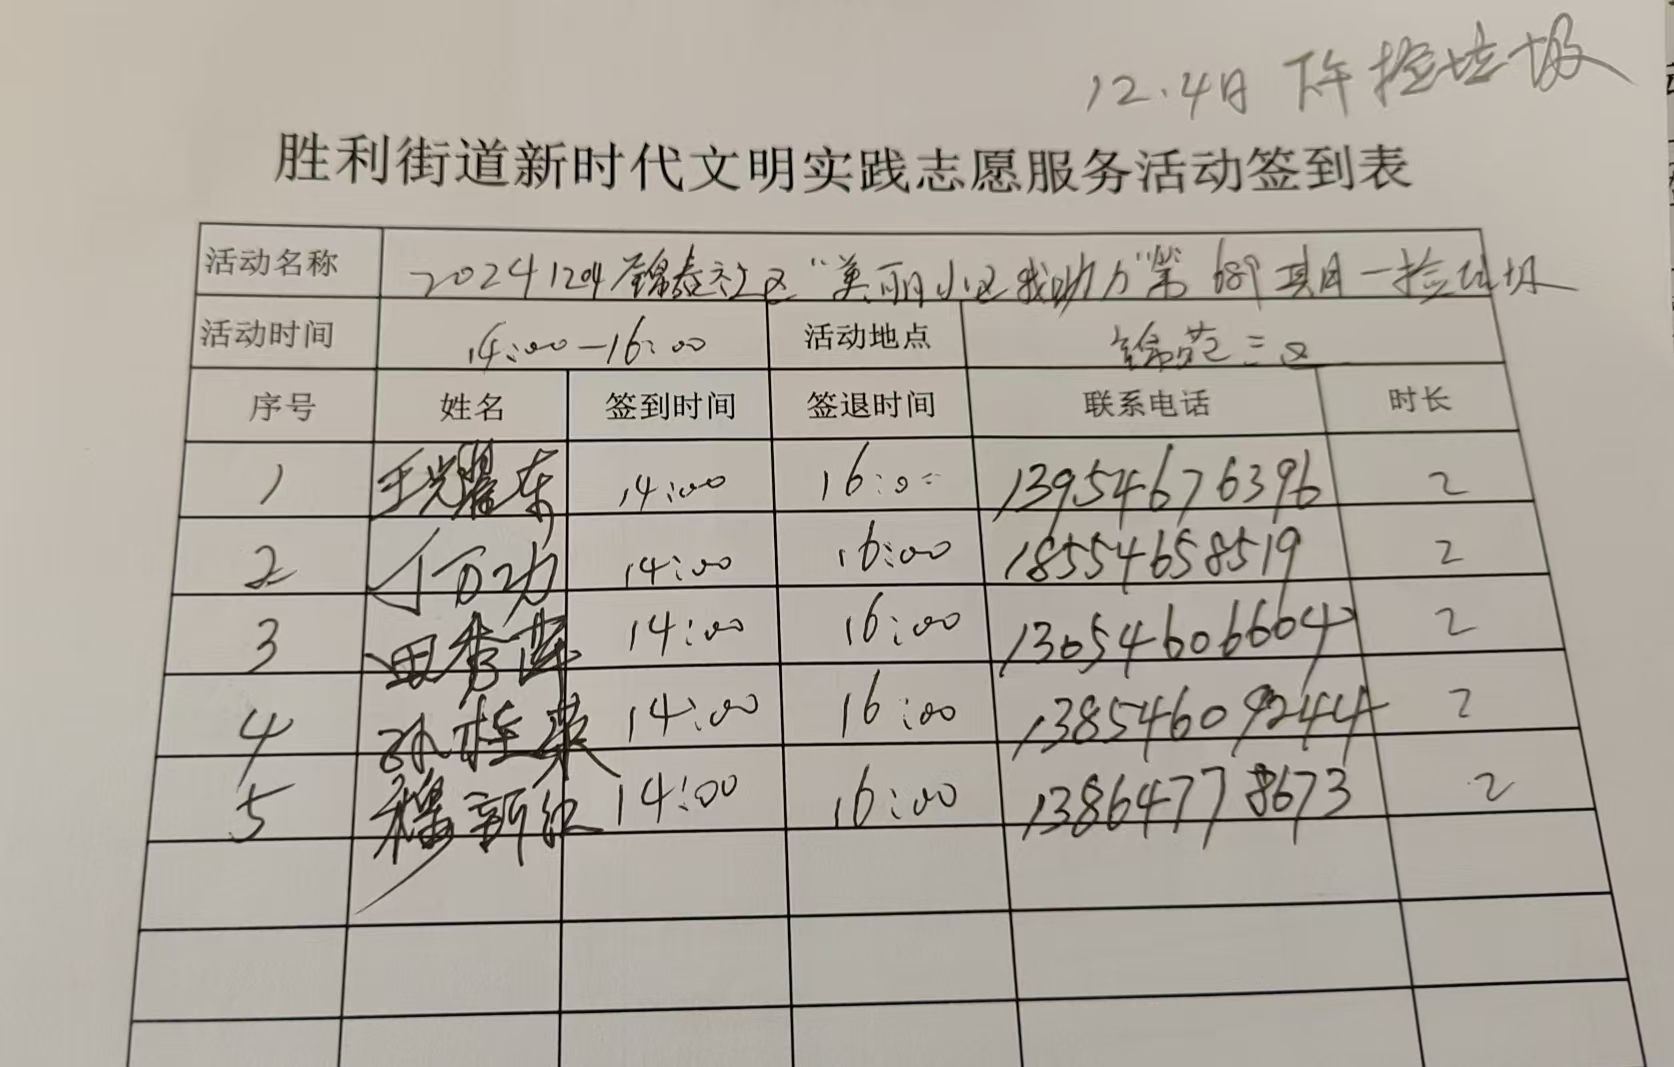 12.4日 下午 捡垃圾
胜利街道新时代文明实践志愿服务活动签到表
活动名称 20241204锦泰社区“美丽小区我助力”第689期一捡垃圾
活动时间 14:00—16:00 活动地点 锦苑三区
序号 姓名 签到时间 签退时间 联系电话 时长
1 王耀东 14:00 16:00 13954676396 2
2 丁万功 14:00 16:00 18554658519 2
3 田秀莲 14:00 16:00 13054606604 2
4 孙桂荣 14:00 16:00 13854609244 2
5 新红 14:00 16:00 13864778673 2